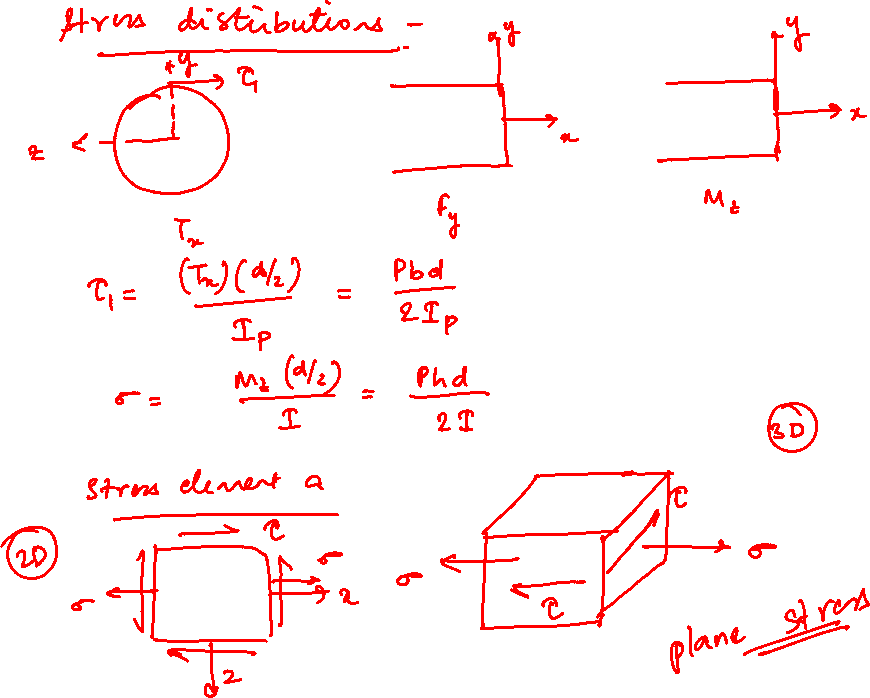 Stress distributions -
y τ₁ y y
z x x
Tₓ f_y M_z
τ₁ = (Tₓ)(d/2) / I_P = Pbd / 2I_P
σ = M_z (d/2) / I = Phd / 2I
3D
Stress element a
2D τ τ
σ σ x σ σ
τ
z
plane stress